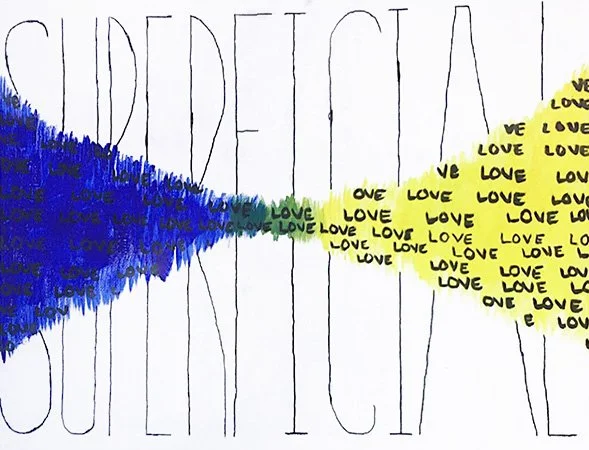 SUPERFICIAL
VE
LOVE
VE LOVE
LOVE LOVE
LOVE LOVE LOV
LOVE LOVE OVE LOVE LOVE LOVE
LOVE LOVE LOVE LOVE LOVE LOVE LOVE LOVE LO
LOVE LOVE LOVE LOVE LOVE LOVE LOVE LOVE LO
LOVE LOVE LOVE LOVE LOVE LOVE LOVE
LOVE
LOVE LOVE LOVE LOVE LO
LOVE LOVE LOVE LO
LOV OVE LOVE
LOVE E LOV